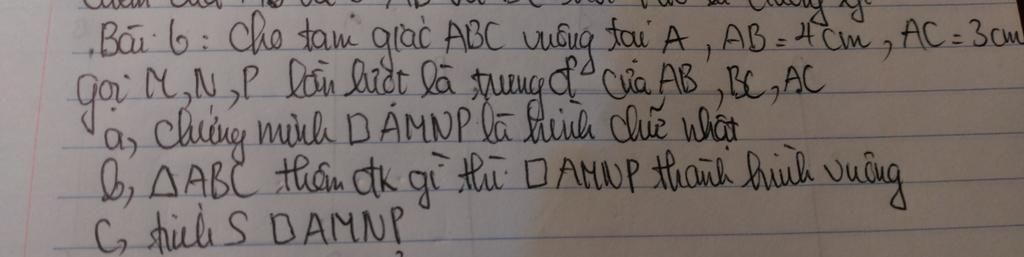 Bài 6: Cho tam giác ABC vuông tại A, AB = 4cm, AC = 3cm
gọi M, N, P lần lượt là trung đ' của AB, BC, AC
a, chứng minh □ AMNP là hình chữ nhật
b, △ABC thêm đk gì thì □ AMNP thành hình vuông
C, tính S □ AMNP